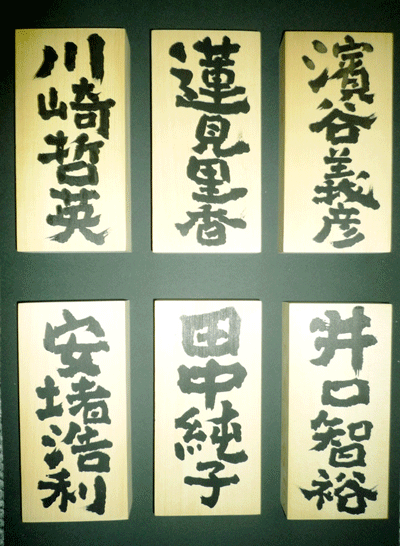 濱谷義彦
蓮見里香
川崎哲英
井口智裕
田中純子
安堵浩利